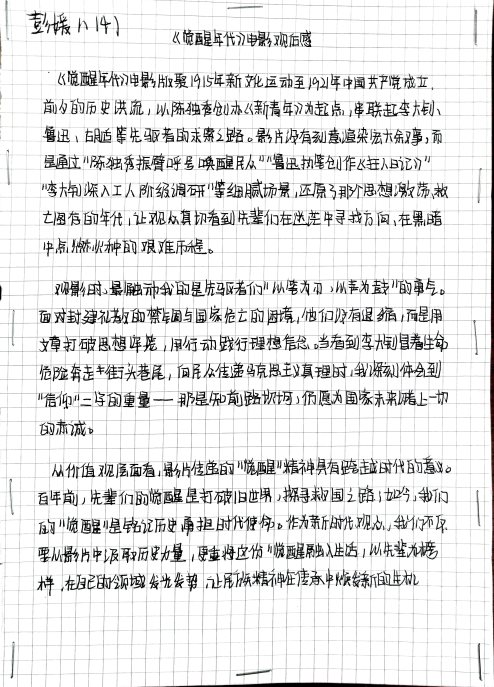 彭媛 八(4)
《觉醒年代》电影观后感
《觉醒年代》电影版聚1915年新文化运动至1921年中国共产党成立
前夕的历史洪流，以陈独秀创办《新青年》为起点，串联起李大钊、
鲁迅、胡适等先驱者的求索之路。影片没有刻意渲染宏大叙事，而
是通过"陈独秀振臂呼号唤醒民众""鲁迅执笔创作《狂人日记》"
"李大钊深入工人阶级调研"等细腻场景，还原了那个思想激荡、救
亡图存的年代，让观众真切看到先辈们在迷茫中寻找方向，在黑暗
中点燃火种的艰难历程。
观影时，最触动我的是先驱者们"以笔为刀，以声为鼓"的勇气。
面对封建礼教的禁锢与国家危亡的困境，他们没有退缩，而是用
文章打破思想牢笼，用行动践行理想信念。当看到李大钊冒着生命
危险奔走于街头巷尾，向民众传递马克思主义真理时，我深刻体会到
"信仰"二字的重量——那是知前路坎坷，仍愿为国家未来赌上一切
的赤诚。
从价值观层面看，影片传递的"觉醒"精神具有跨越时代的意义。
百年前，先辈们的觉醒是打破旧世界，探寻救国之路；如今，我们
的"觉醒"是铭记历史勇担时代使命。作为新时代观众，我们不仅
要从影片中汲取历史力量，更要将这份"觉醒融入生活，以先辈为榜
样，在自己的领域发光发热，让 精神在传承中焕发新的生机